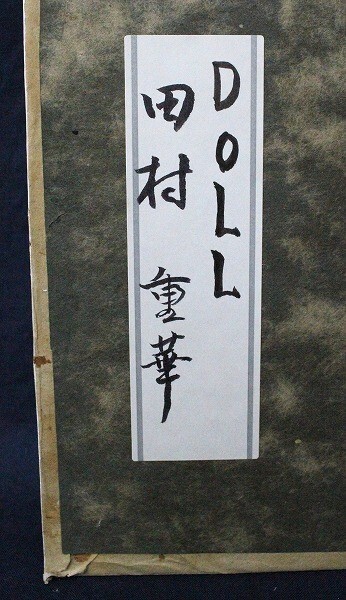 DOLL
田村 重華